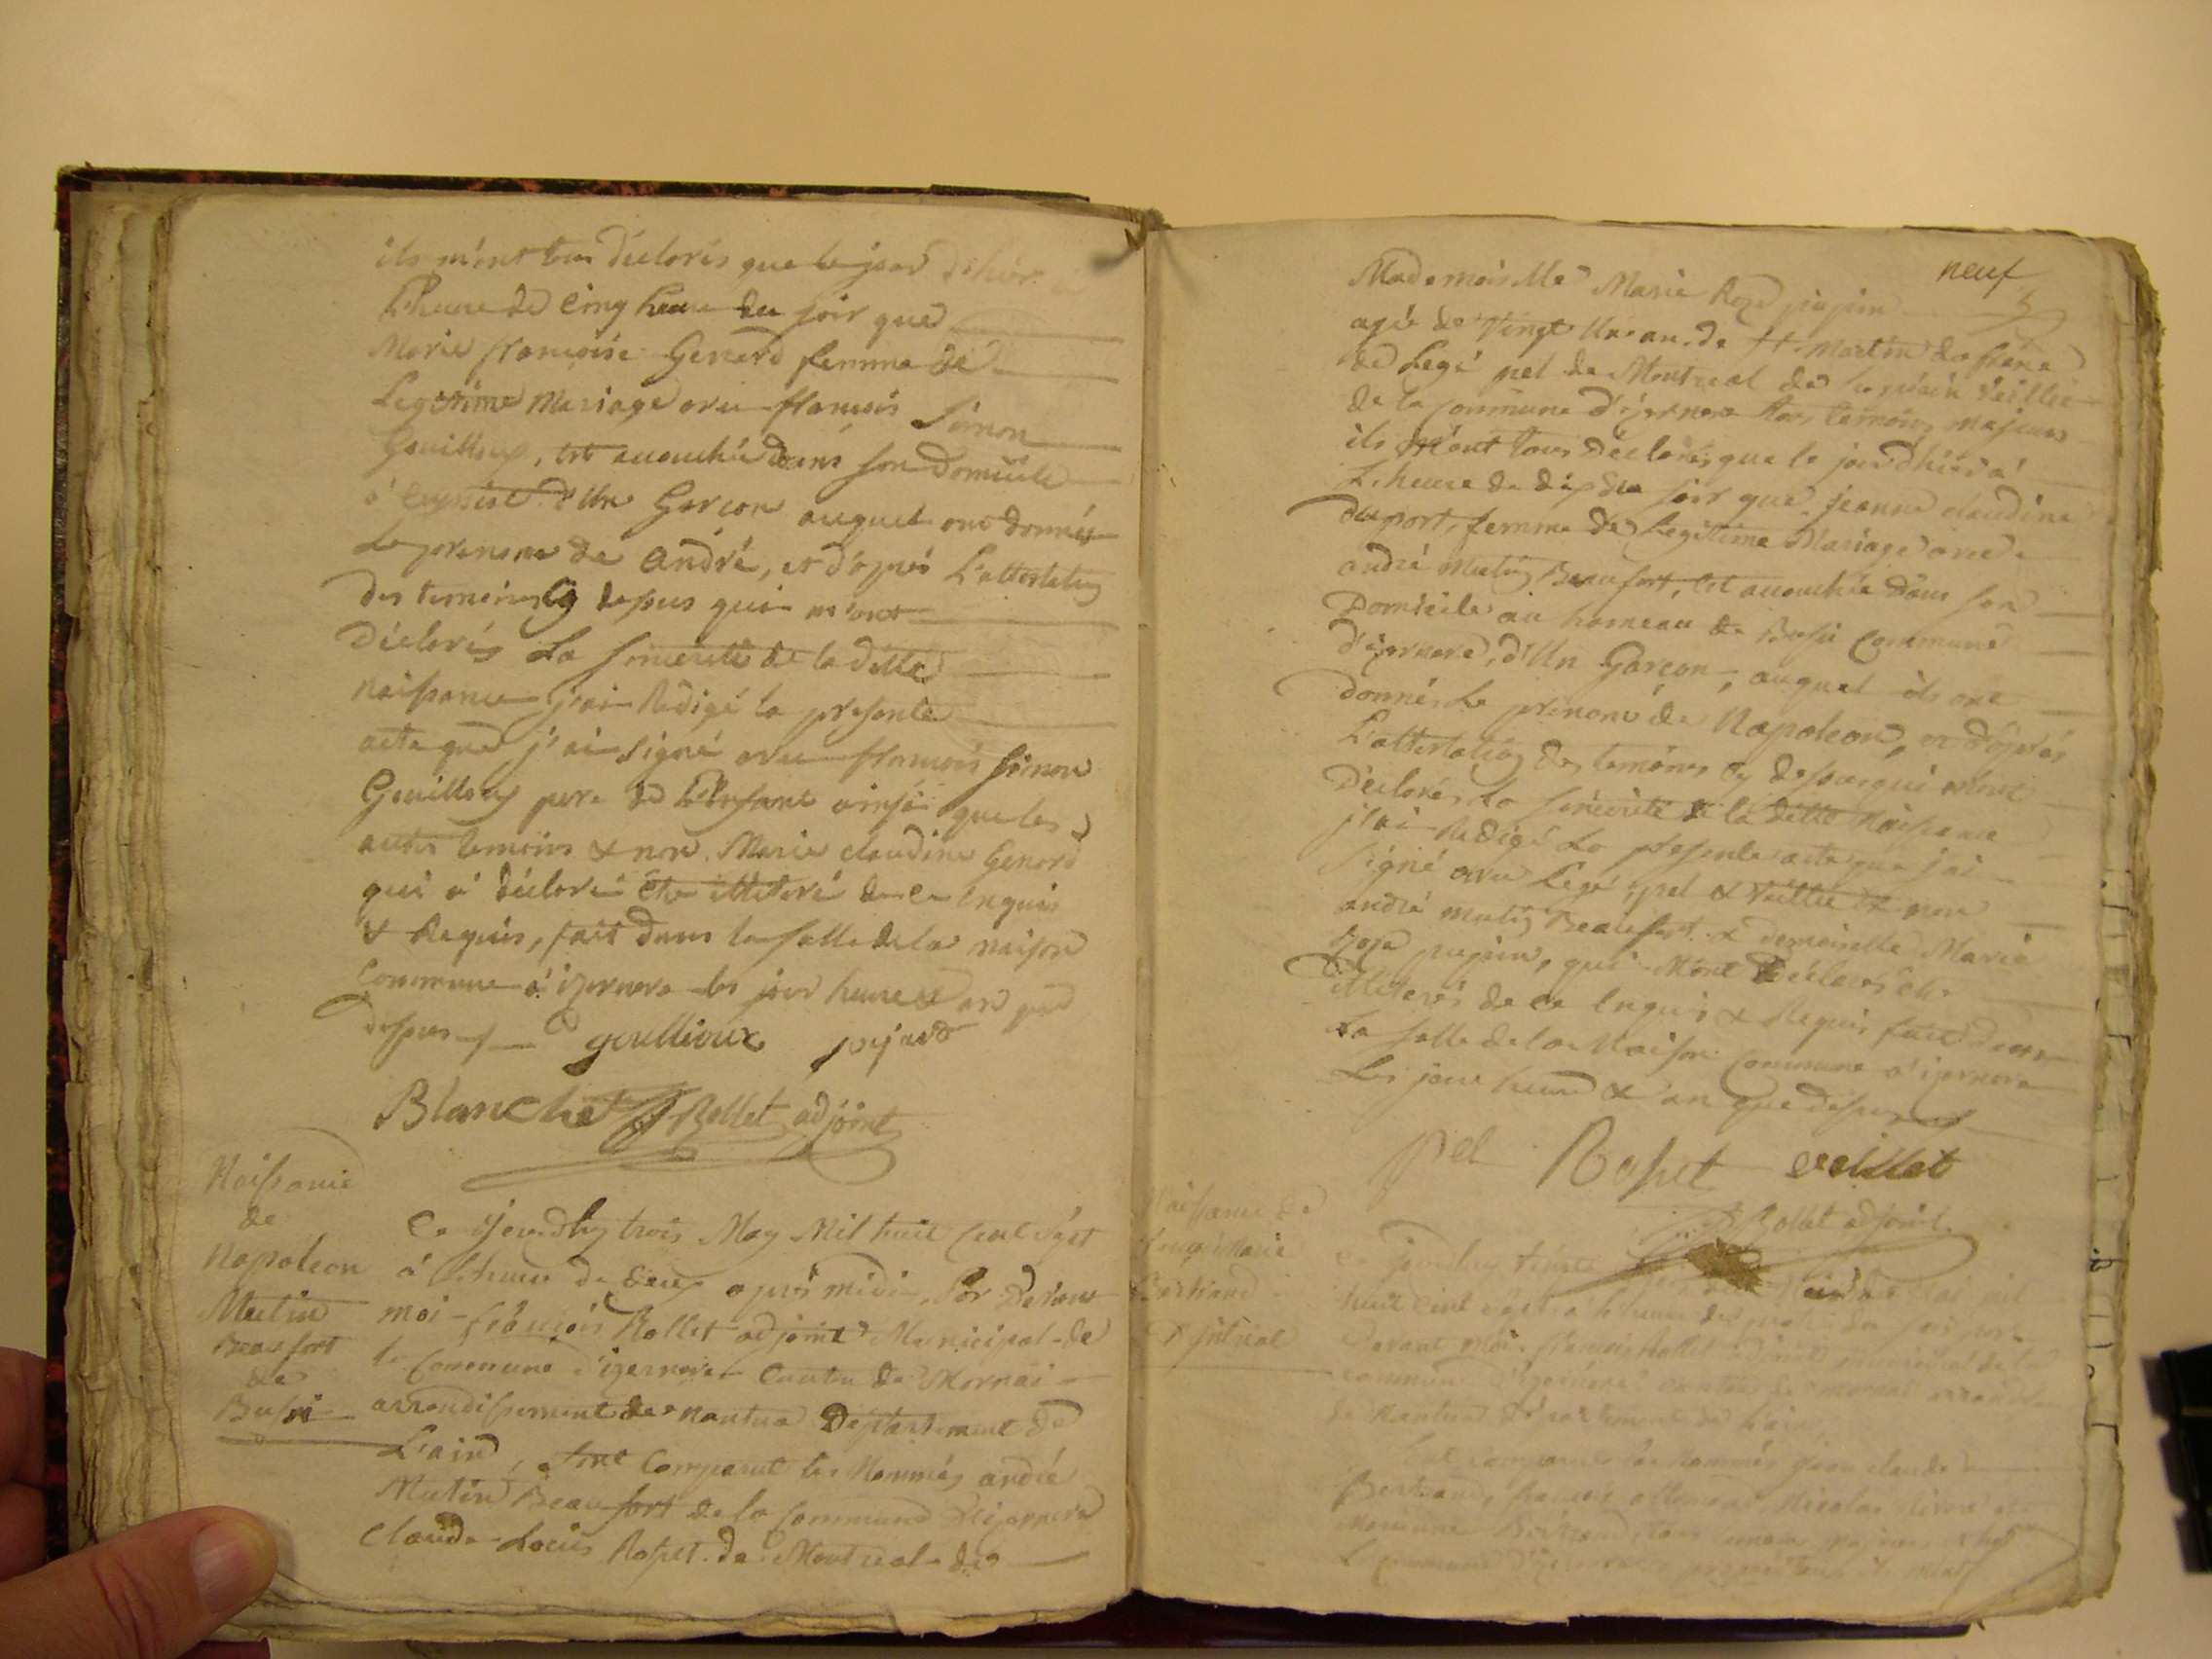 ils m'ont tous déclarés que le jour d'hier à
l'heure de Cinq heure du soir que
Marie françoise Genard femme de
Legitime Mariage avec françois Simon
Gouilloux, est accouchée dans son Domicile
d'Un Garcon auquel ont donnés
Le prenom de André, et d'après L'attestation
des temoins Cy dessus qui m'ont
Déclarés La sincerité de la ditte
naissance j'ai Rédigé la presente
acte que j'ai signé avec francois Simon
Gouilloux pere de L'Enfant ainsi que les
autres temoins & non Marie claudine Genard
qui a déclaré être illiteré de ce enquis
& Requis, fait dans la salle de la maison
Commune d'izernore les jour heure & an que
dessus goullioux pejard
Blanchet Rollet adjoint
Naissance
de
Napoleon
Mutin
Beaufort
de
Bussi
Ce jourd'huy trois May Mil huit Cent Vingt
à L'heure de deux après midi, Par Devant
moi françois Rollet adjoint Municipal de
la Commune d'izernore Canton de Mornai
arrondissement de nantua Département de
L'ain, sont Comparut les Nommés andré
Mutin Beaufort de la Commune d'izernore
Claude Louis Rosset de Montreal de
neuf
Mademoiselle Marie Roze pujein
agée de Vingt Un an de St. Martin du frene
de Legé pel de Montreal de veillet
de la Commune d'izernore tous temoins majeurs
ils M'ont tous Déclarés que le jour d'hier à
L'heure de dix du soir que jeanne claudine
duport, femme de Legitime Mariage avec
andré Mutin Beaufort, est accouchée dans son
Domicile au hameau de Bussi Commune
d'izernore, d'Un Garcon, auquel ils ont
donnés Le prenom de Napoleon, et d'après
L'attestation des temoins Cy dessus qui m'ont
Déclarés La sincerité de la ditte Naissance
j'ai Rédigé La presente acte que j'ai
signé avec Legé pel & Veillet & non
andré mutin Beaufort & demoiselle Marie
roze pujein, qui M'ont déclarés être
illiterés de ce Enquis & Requis fait dans
La salle de la Maison Commune d'izernore
Les jour heure & an que dessus
pel Rosset veillet
Rollet adjoint
Naissance de
Marie
Bertrand
Ce jourd'huy trente Mai mil
huit Cent vingt à L'heure de du soir par
Devant moi francois Rollet adjoint municipal de la
Commune d'izernore canton de mornai arrondt
de Nantua Département de L'ain,
sont comparus les Nommés jean claude
Bertrand, francois Nicolas
Marianne Bertrand, tous temoins majeurs